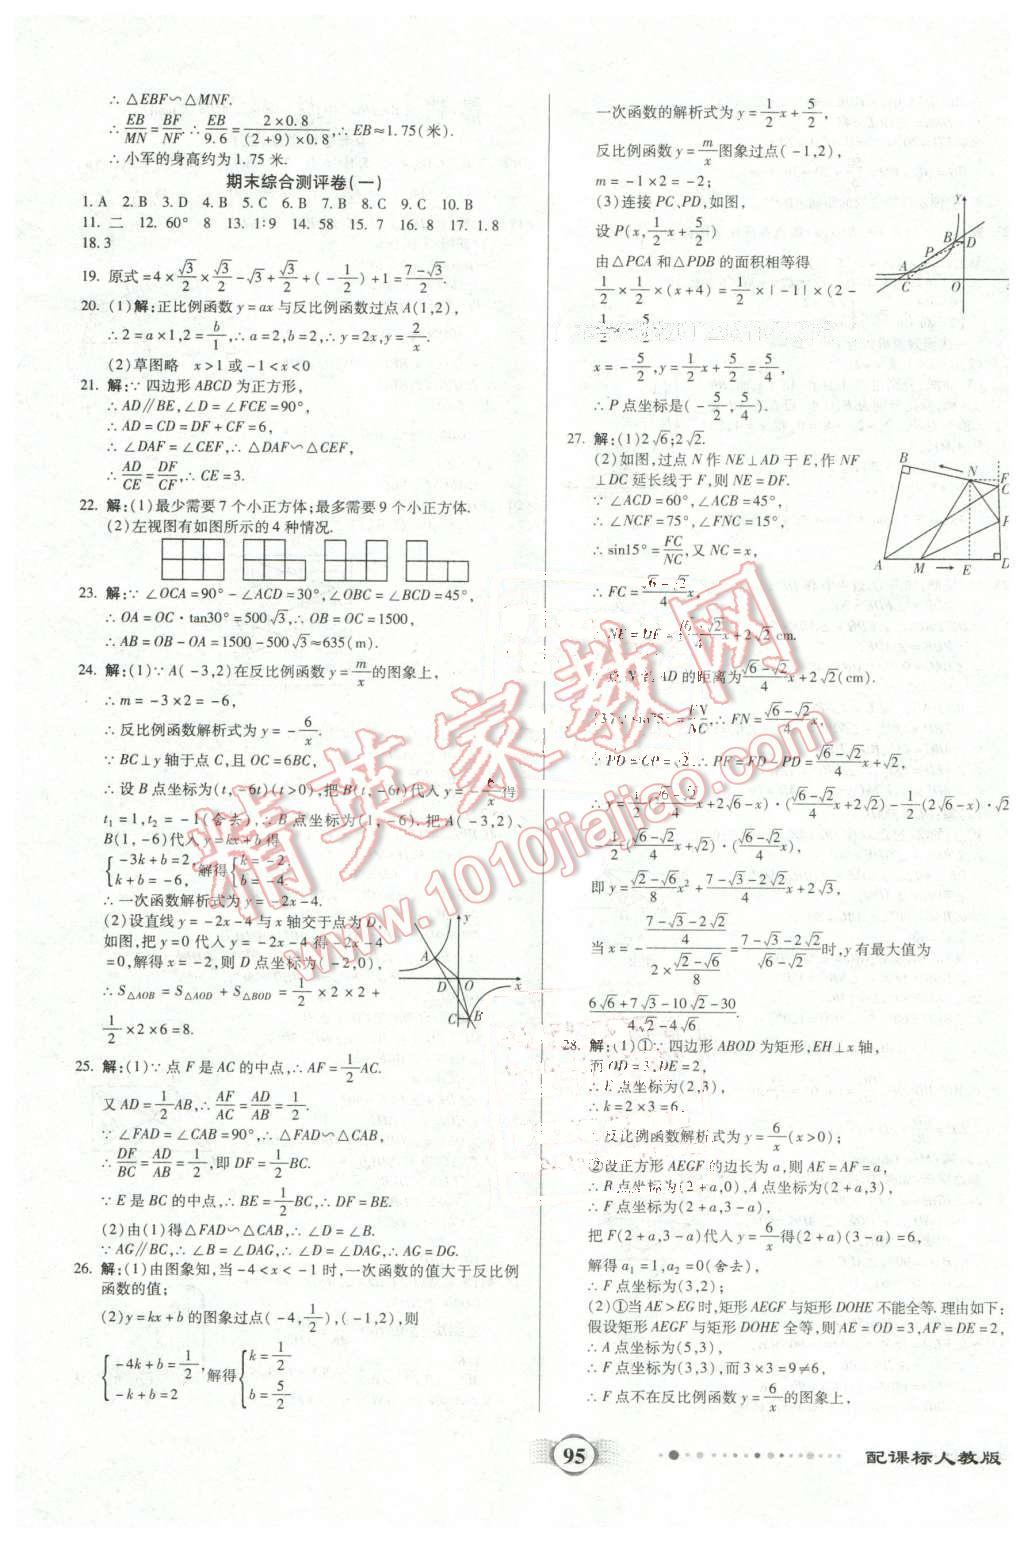 ∴ △EBF∽△MNF.
∴ EB/MN = BF/NF. ∴ EB/9.6 = 2×0.8/(2+9)×0.8, ∴ EB≈1.75(米).
∴ 小军的身高约为 1.75 米.
期末综合测评卷(一)
1. A 2. B 3. D 4. B 5. C 6. B 7. B 8. C 9. C 10. B
11. 二 12. 60° 8 13. 1∶9 14. 58 15. 7 16. 8 17. 1.8
18. 3
19. 原式=4×√3/2×√3/2-√3+√3/2+(-1/2)+1=(7-√3)/2.
20. (1)解:正比例函数 y=ax 与反比例函数过点 A(1,2),
∴ 2=a×1,2=b/1,∴ a=2,b=2,∴ y=2x,y=2/x.
(2)草图略 x>1 或 -1<x<0
21. 解:∵ 四边形 ABCD 为正方形,
∴ AD∥BE,∠D=∠FCE=90°,
∴ AD=CD=DF+CF=6,
∴ ∠DAF=∠CEF,∴ △DAF∽△CEF,
∴ AD/CE=DF/CF,∴ CE=3.
22. 解:(1)最少需要 7 个小正方体;最多需要 9 个小正方体.
(2)左视图有如图所示的 4 种情况.
23. 解:∵ ∠OCA=90°-∠ACD=30°,∠OBC=∠BCD=45°,
∴ OA=OC·tan30°=500√3,∴ OB=OC=1500,
∴ AB=OB-OA=1500-500√3≈635(m).
24. 解:(1)∵ A(-3,2)在反比例函数 y=m/x 的图象上,
∴ m=-3×2=-6,
∴ 反比例函数解析式为 y=-6/x.
∵ BC⊥y 轴于点 C,且 OC=6BC,
∴ 设 B 点坐标为(t,-6t)(t>0),把 B(t,-6t)代入 y=-6/x 得
t₁=1,t₂=-1(舍去),∴ B 点坐标为(1,-6).把 A(-3,2)、
B(1,-6)代入 y=kx+b 得
{-3k+b=2, k+b=-6, 解得{k=-2, b=-4.
∴ 一次函数解析式为 y=-2x-4.
(2)设直线 y=-2x-4 与 x 轴交于点为 D,
如图,把 y=0 代入 y=-2x-4 得 -2x-4
=0,解得 x=-2,则 D 点坐标为(-2,0),
∴ S△AOB=S△AOD+S△BOD=1/2×2×2+
1/2×2×6=8.
y A D O x C B
25. 解:(1)∵ 点 F 是 AC 的中点,∴ AF=1/2AC.
又 AD=1/2AB,∴ AF/AC=AD/AB=1/2.
∵ ∠FAD=∠CAB=90°,∴ △FAD∽△CAB,
∴ DF/BC=AD/AB=1/2,即 DF=1/2BC.
∵ E 是 BC 的中点,∴ BE=1/2BC,∴ DF=BE.
(2)由(1)得△FAD∽△CAB,∴ ∠D=∠B.
∵ AG∥BC,∴ ∠B=∠DAG,∴ ∠D=∠DAG,∴ AG=DG.
26. 解:(1)由图象知,当 -4<x<-1 时,一次函数的值大于反比例
函数的值;
(2)y=kx+b 的图象过点(-4,1/2),(-1,2),则
{-4k+b=1/2, -k+b=2 解得{k=1/2 b=5/2
一次函数的解析式为 y=1/2x+5/2,
反比例函数 y=m/x 图象过点(-1,2),
m=-1×2=-2;
(3)连接 PC、PD,如图,
设 P(x,1/2x+5/2)
由△PCA 和△PDB 的面积相等得
1/2×1/2×(x+4)=1/2×|-1|×(2-
1/2x-5/2),
x=-5/2,y=1/2x+5/2=5/4,
∴ P 点坐标是(-5/2,5/4).
y B D P A C O
27. 解:(1)2√6;2√2.
(2)如图,过点 N 作 NE⊥AD 于 E,作 NF
⊥DC 延长线于 F,则 NE=DF.
∵ ∠ACD=60°,∠ACB=45°,
∴ ∠NCF=75°,∠FNC=15°,
∴ sin15°=FC/NC,又 NC=x,
∴ FC=(√6-√2)/4 x,
∴ NE=DF=(√6-√2)/4 x+2√2 cm.
∴ 点 N 到 AD 的距离为(√6-√2)/4 x+2√2(cm).
(3)∵ sin75°=FN/NC,∴ FN=(√6+√2)/4 x.
B N F C A M E D
即 y=(√2-√6)/8 x²+(7-√3-2√2)/4 x+2√3,
当 x=-((7-√3-2√2)/4)/(2×(√2-√6)/8)=(7-√3-2√2)/(√6-√2)时,y 有最大值为
(6√6+7√3-10√2-30)/(4√2-4√6)
28. 解:(1)①∵ 四边形 ABOD 为矩形,EH⊥x 轴,
而 OD=3,DE=2,
∴ E 点坐标为(2,3),
∴ k=2×3=6.
∴ 反比例函数解析式为 y=6/x(x>0);
②设正方形 AEGF 的边长为 a,则 AE=AF=a,
∴ B 点坐标为(2+a,0),A 点坐标为(2+a,3),
∴ F 点坐标为(2+a,3-a),
把 F(2+a,3-a)代入 y=6/x 得(2+a)(3-a)=6,
解得 a₁=1,a₂=0(舍去),
∴ F 点坐标为(3,2);
(2)①当 AE>EG 时,矩形 AEGF 与矩形 DOHE 不能全等.理由如下:
假设矩形 AEGF 与矩形 DOHE 全等,则 AE=OD=3,AF=DE=2,
∴ A 点坐标为(5,3),
∴ F 点坐标为(3,3),而 3×3=9≠6,
∴ F 点不在反比例函数 y=6/x 的图象上,
95
配课标人教版
精英家教网
1010jiajiao.com